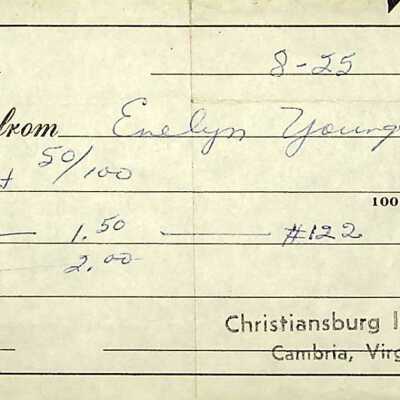 8-25
from Evelyn Young
50/100
100
1.50 #122
2.00
Christiansburg
Cambria, Virg